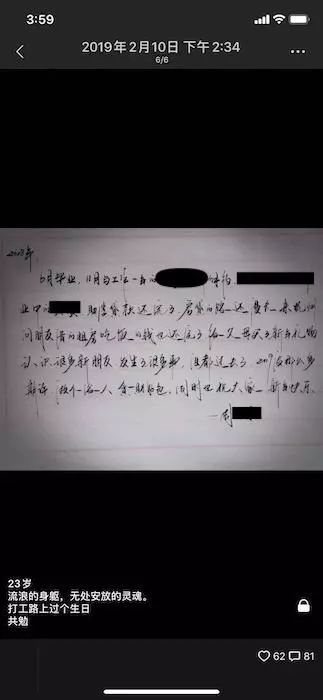 3:59
2019年2月10日 下午2:34
6/6
2018年
6月毕业,11月与工作一年的
业中的 助学贷款还完了 房贷 还 来杭州
问朋友借的租房吃饭的钱也还完了 给父母买了新年礼物
认识很多新朋友 发生了很多事,但都过去了 2019没那么多
期许, 同时也祝大家 新年快乐.
—周
23岁
流浪的身躯，无处安放的灵魂。
打工路上过个生日
共勉
62 81